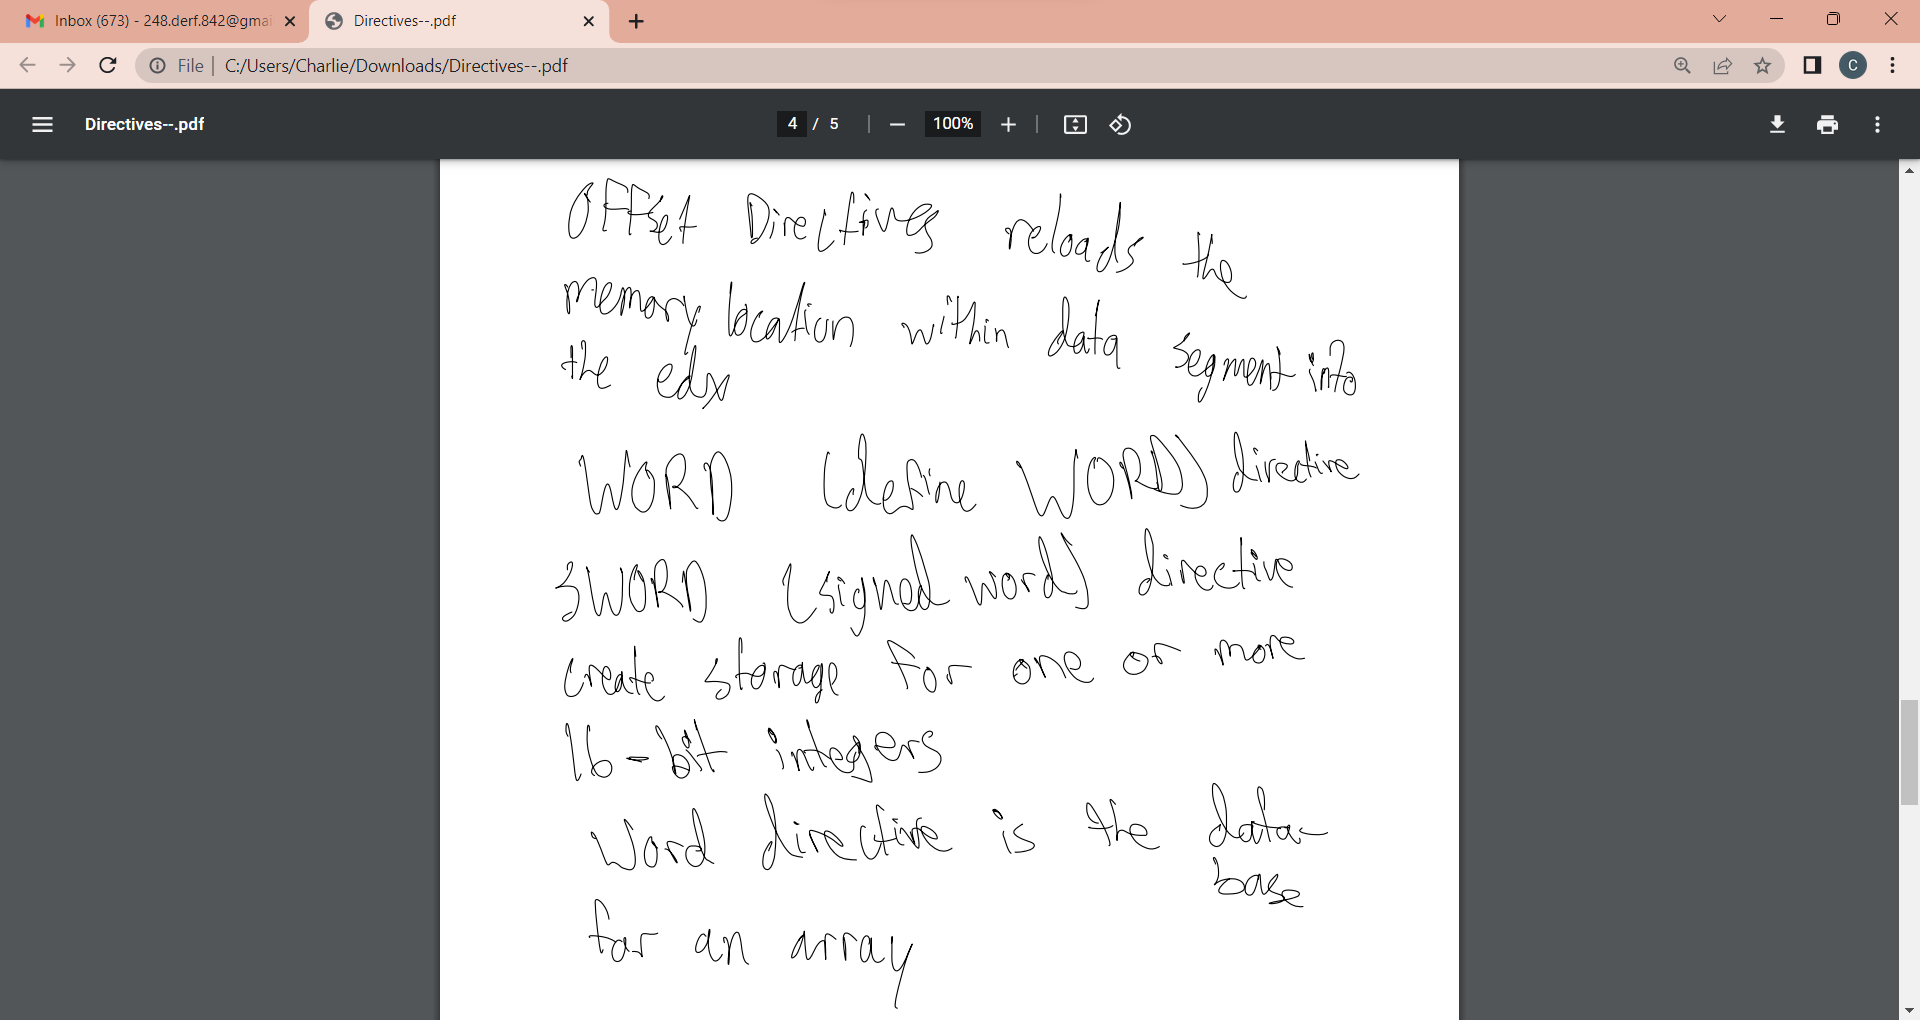 Inbox (673) - 248.derf.842@gmai
Directives--.pdf
File
C:/Users/Charlie/Downloads/Directives--.pdf
C
Directives--.pdf
4 / 5
100%
OFFset Directives reloads the
memory location within data segment into
the edx
WORD (define WORD) directive
SWORD (signed word) directive
create storage for one or more
16-bit integers
Word directive is the data-
base
for an array